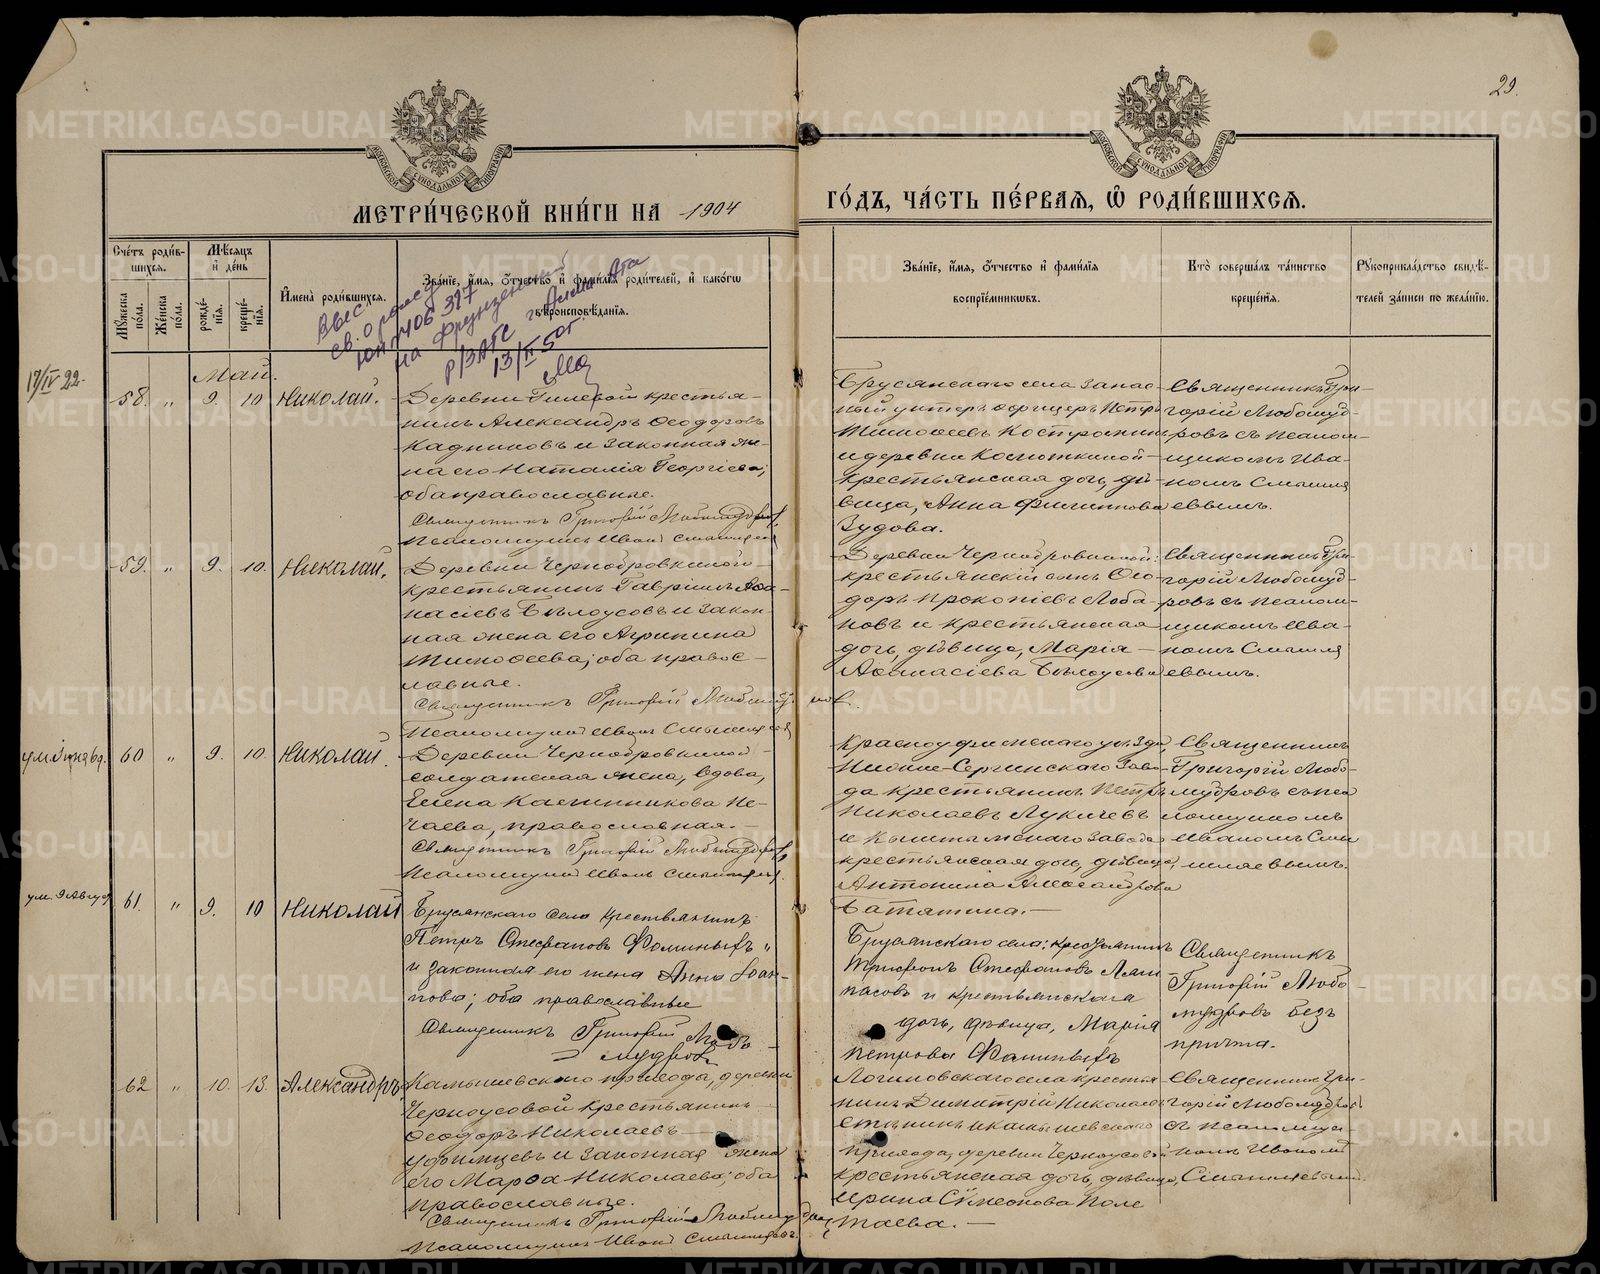 29.
МЕТРИ́ЧЕСКОЙ КНИ́ГИ НА 1904
ГО́ДЪ, ЧА́СТЬ ПЕ́РВАЯ, Ѿ РОДИ́ВШИХСЯ.
Сче́тъ роди́в-
шихся.
Му́жеска по́ла.
Же́нска по́ла.
Мѣ́сяцъ
и҆ де́нь
рожде́-
нїя.
креще́-
нїя.
И҆мена̀ роди́вшихся.
Зва́нїе, и҆́мя, ѻ҆́тчество и҆ фами́лїя роди́телей, и҆ како́гѡ
вѣроисповѣ́данїя.
Зва́нїе, и҆́мя, ѻ҆́тчество и҆ фами́лїя
воспрїе́мниковъ.
Кто̀ соверша́лъ та́инство
креще́нїя.
Рꙋкоприкла́дство свидѣ́-
телей за́писи по жела́нїю.
13/II 50г.
17/IV 22.
Май.
58. „ 9. 10 Николай.
Деревни Гилевой крестья-
нинъ Александръ Ѳеодоровъ
Кадниковъ и законная же-
на его Наталія Георгіева;
оба православные.
Священникъ Григорій Любомудровъ,
Псаломщикъ Иванъ Смышляевъ
Брусянскаго села запас-
ный унтеръ офицеръ Петръ
Тимоѳеевъ Костромин
и деревни
крестьянская дочь, дѣ-
вица, Анна Филиппова
Зудова.
Священникъ Гри-
горій Любомуд-
ровъ съ псалом-
щикомъ Ива-
номъ Смышля
евымъ.
59. „ 9. 10. Николай.
Деревни Чернобровкиной
крестьянинъ Гавріилъ Аѳа-
насіевъ Бѣлоусовъ и закон-
ная жена его Агрипина
Тимоѳеева; оба правос-
лавные.
Священникъ Григорій Любомудровъ.
Псаломщикъ Иванъ Смышляевъ
Деревни Чернобровкиной:
крестьянскій сынъ Ѳео-
доръ Прокопіевъ Лоба-
новъ и крестьянская
дочь, дѣвица, Марія
Аѳанасіева Бѣлоусова
Священникъ Гри-
горій Любомуд-
ровъ съ псалом-
щикомъ Ива-
номъ Смышля
евымъ.
60 „ 9. 10. Николай.
Деревни Чернобровкиной
солдатская жена, вдова,
Елена Калинникова Не-
чаева, православная.
Священникъ Григорій Любомудровъ,
Псаломщикъ Иванъ Смышляевъ.
Красноуфимскаго уѣзда,
Нижне-Сергинскаго Заво-
да крестьянинъ Петръ
Николаевъ Лукичевъ
и Кыштымскаго завода
крестьянская дочь, дѣвица,
Антонина Александрова
Батятина.
Священникъ
Григорій Любо-
мудровъ съ пса
ломщикомъ
Иваномъ Смы
шляевымъ.
ум. 9 Авгус.
61. „ 9. 10 Николай
Брусянскаго села крестьянинъ
Петръ Стефановъ Фоминыхъ „
и законная его жена Анна Іоан-
нова; оба православные
Священникъ Григорій Любо-
мудровъ
Брусянскаго села: крестьянинъ
Трифонъ Стефановъ
и крестьянская
дочь, дѣвица, Марія
Петрова Фоминыхъ
Священникъ
Григорій Любо-
мудровъ безъ
причта.
62 „ 10. 13. Александръ
Камышевскаго прихода, деревни
Черноусовой крестьянинъ
Ѳеодоръ Николаевъ
Уфимцевъ и законная жена
его Марѳа Николаева; оба
православные.
Священникъ Григорій Любомудровъ
Псаломщикъ Иванъ Смышляевъ.
Логиновскаго села крестья
нинъ Димитрій Николаевъ
и Камышевскаго
прихода, деревни Черноусовой
крестьянская дочь, дѣвица,
Ирина Сѵмеонова Поле
таева.
Священникъ Гри-
горій Любомудровъ
съ псаломщи-
комъ Иваномъ
Смышляевымъ.
METRIKI.GASO-URAL.RU